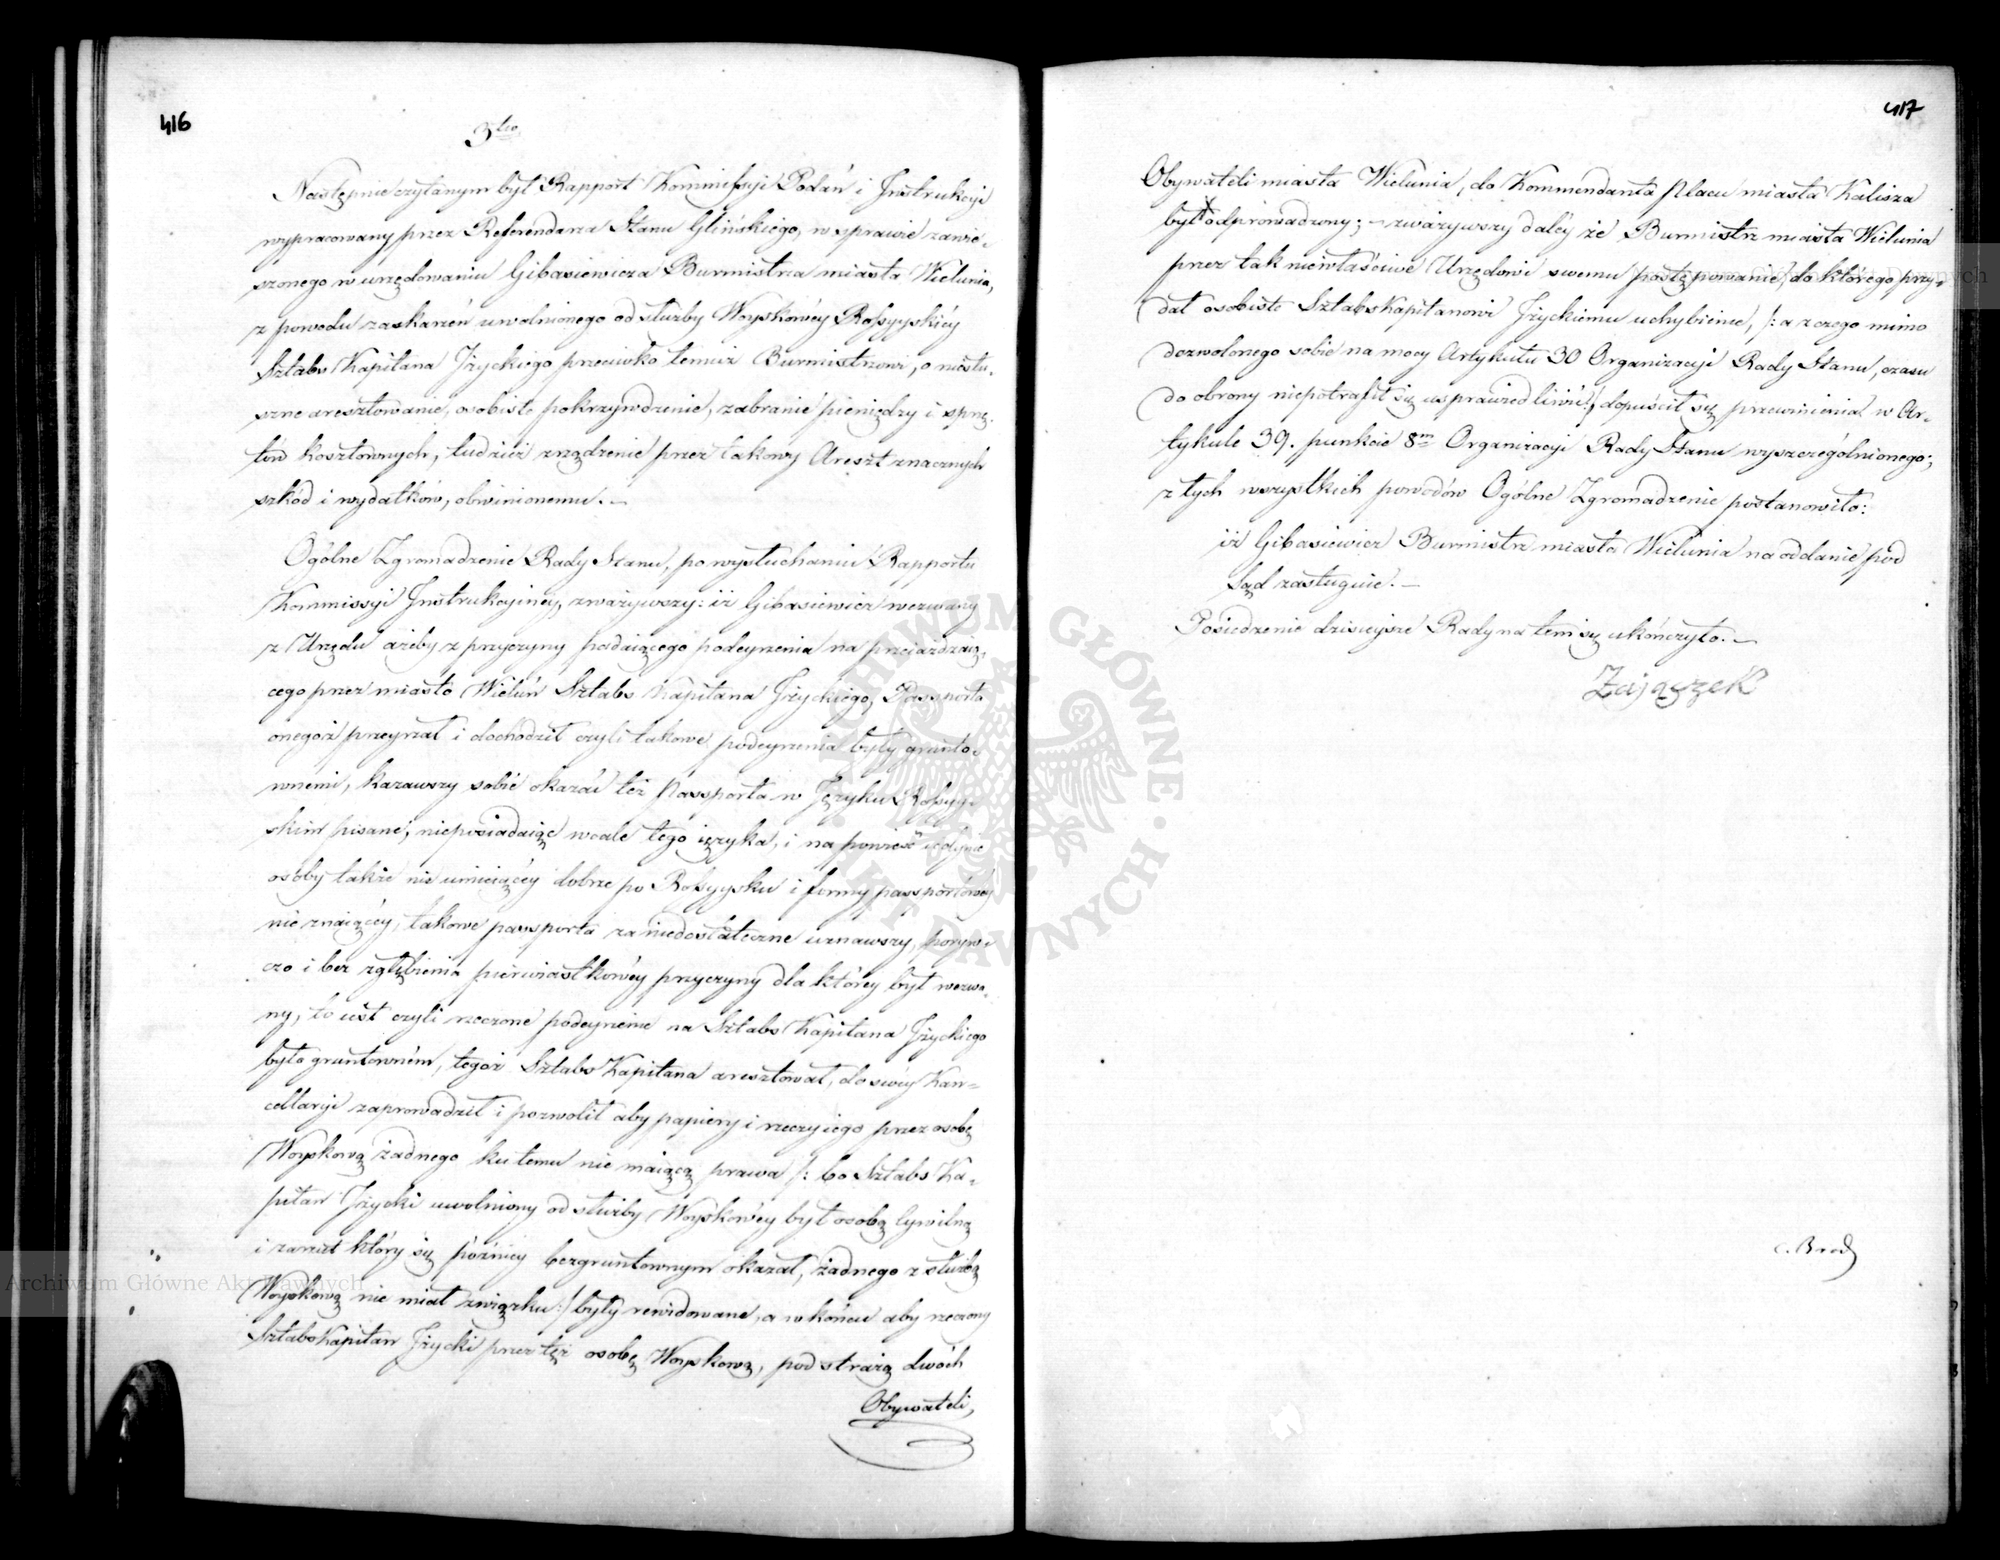 416
3tio
Następnie czytanym był Rapport Kommissyi Podań i Instrukcyi
wypracowany przez Referendarza Stanu Glińskiego, w sprawie zawie-
szonego w urzędowaniu Gibasiewicza Burmistrza miasta Wielunia,
z powodu zaskarżeń uwolnionego od służby Woyskowéy Rossyyskiéy
Sztabs Kapitana Jżyckiego przeciwko temuż Burmistrzowi, o niesłu-
szne aresztowanie, osobiste pokrzywdzenie, zabranie pieniędzy i sprzę-
tów kosztownych, tudzież zrządzenie przez takowy Areszt znacznych
szkód i wydatków, obwinionemu. —
Ogólne Zgromadzenie Rady Stanu, po wysłuchaniu Rapportu
Kommissyi Instrukcyiney, zważywszy: iż Gibasiewicz wezwany
z Urzędu ażeby z przyczyny podaiącego podeyrzenia na przeiażdżaią-
cego przez miasto Wieluń Sztabs Kapitana Jżyckiego, Passporta
onegoż przeyrzał i dochodził czyli takowe podeyrzenia były grunto-
wnemi, kazawszy sobie okazać też Passporta w Języku Rossyy-
skim pisane, nieposiadaiąc wcale tego ięzyka, i na powieść iedynie
osoby także nie umieiącéy dobrze po Rossyysku i formy passportowéy
nie znaiącéy, takowe passporta za niedostateczne uznawszy, porywi-
czo i bez zgłębienia pierwiastkowéy przyczyny dla któréy był wezwa-
ny, to iest czyli rzeczone podeyrzenie na Sztabs Kapitana Jżyckiego
było gruntowném, tegoż Sztabs Kapitana aresztował, do swéy Kan-
cellaryi zaprowadził i pozwolił aby papiery i rzeczy iego przez osobę
Woyskową żadnego ku temu nie maiącą prawa /: bo Sztabs Ka-
pitan Jżycki uwolniony od służby Woyskowéy był osobą Cywilną
i zarzut który się późniéy bezgruntownym okazał, żadnego z służbą
Woyskową nie miał związku :/ były rewidowane, a w końcu aby rzeczony
Sztabs Kapitan Jżycki przez tęż osobę Woyskową, pod strażą dwóch
Obywateli,
417
Obywateli miasta Wielunia, do Kommendanta Placu miasta Kalisza
był odprowadzony; — zważywszy daléy że Burmistrz miasta Wielunia
przez tak niewłaściwe Urzędowi swemu postępowanie, do którego przy-
dał osobiste Sztabs Kapitanowi Jżyckiemu uchybienie, /: a z czego mimo
dozwolonego sobie na mocy Artykułu 30 Organizacyi Rady Stanu, czasu
do obrony niepotrafił się usprawiedliwić :/ dopuścił się przewinienia w Ar-
tykule 39. punkcie 8m Organizacyi Rady Stanu wyszczególnionego;
z tych wszystkich powodów Ogólne Zgromadzenie postanowiło:
iż Gibasiewicz Burmistrz miasta Wielunia na oddanie pod
Sąd zasługuie. —
Posiedzenie dzisieysze Rady na tem się ukończyło. —
Zajączek